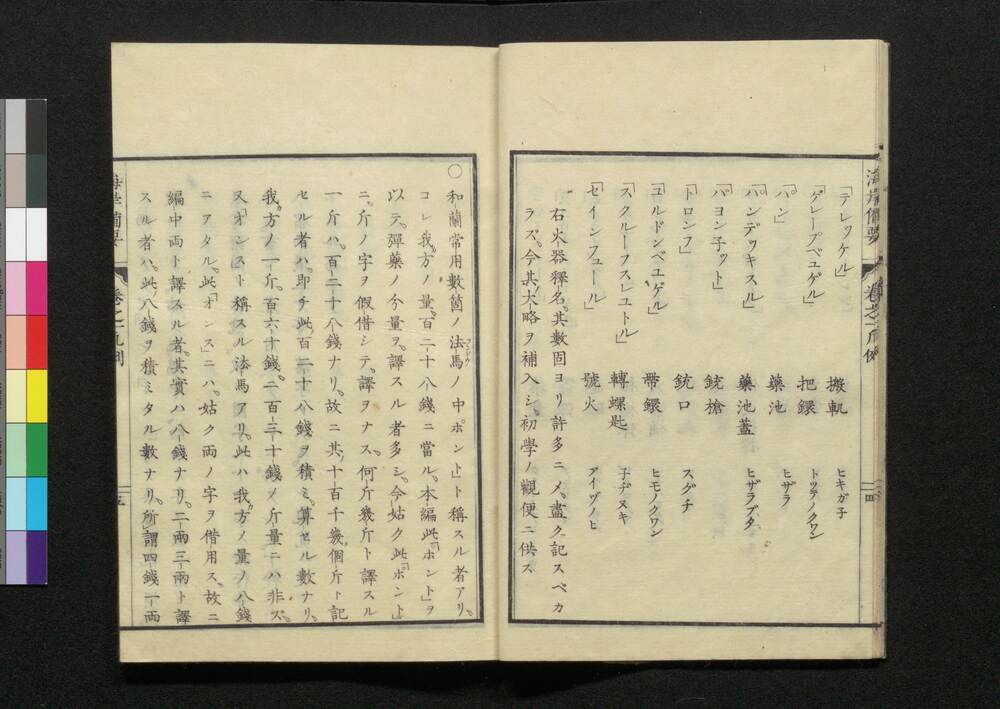 海岸備要
卷之一凡例
四
「テレッケル」 搬軌 ヒキガ子
「ゲレープベユゲル」 把鐶 トッテノクワン
「パン」 藥池 ヒザラ
「パンデッキスル」 藥池蓋 ヒザラブタ
「バヨン子ット」 銃槍
「トロンフ」 銃口 スグチ
「コルドンベユゲル」 帶鐶 ヒモノクワン
「スクルーフスレユトル」 轉螺匙 子ヂヌキ
「セインフュール」 號火 アイヅノヒ
右火器釋名。其數固ヨリ許多ニメ、盡ク記スベカ
ラズ。今其大略ヲ補入シ、初學ノ觀便ニ供ス
○和蘭常用數箇ノ法馬ノ中「ポント」ト稱スル者アリ。
コレ我方ノ量。百二十八錢ニ當ル。本編此「ポント」ヲ
以テ。彈藥ノ分量ヲ譯スル者多シ。今姑ク此「ポント」
ニ、斤ノ字ヲ假借シテ、譯ヲナス。何斤幾斤ト譯スル
一斤ハ。百二十八錢ナリ。故ニ其十百千幾個斤ト記
セル者ハ。即チ此百二十八錢ヲ積ミ。算セル數ナリ。
我方ノ一斤。百六十錢。二百三十錢ノ斤量ニハ非ズ。
又「オンス」ト稱スル法馬アリ。此ハ我方ノ量ノ八錢
ニアタル。此「オンス」ニハ。姑ク両ノ字ヲ借用ス、故ニ
編中両ト譯スル者。其實ハ八錢ナリ。二兩三兩ト譯
スル者ハ。此八錢ヲ積ミタル數ナリ。所謂四錢一両
海岸備要
卷之一凡例
五